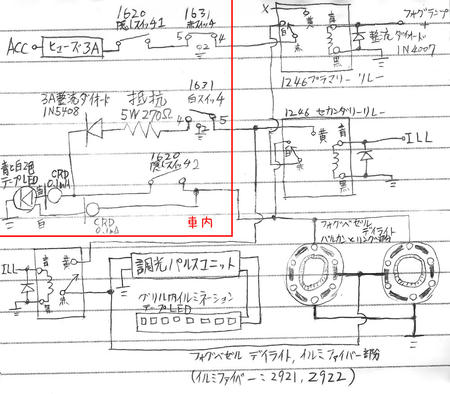 1620
隠しスイッチ1
1631
赤スイッチ
ACC
ヒューズ3A
5
4
2
X
黄
青
白
赤
黒
フォグランプ
整流ダイオード
1N4007
1246プラマリーリレー
3A整流ダイオード
1N5408
抵抗
5W270Ω
1631
白スイッチ
4
5
2
1246 セカンダリーリレー
黄
青
白
赤
黒
ILL
1620
隠しスイッチ2
青と白2色
テープLED
青
CRD
0.1mA
白
CRD
0.1mA
車内
フォグベゼル
デイライト
バルカンとリング部分
ILL
黄
青
白
赤
黒
調光パルスユニット
グリル内イルミネーション
テープLED
フォグベゼル デイライト,イルミファイバー部分
(イルミファイバー:2921,2922)